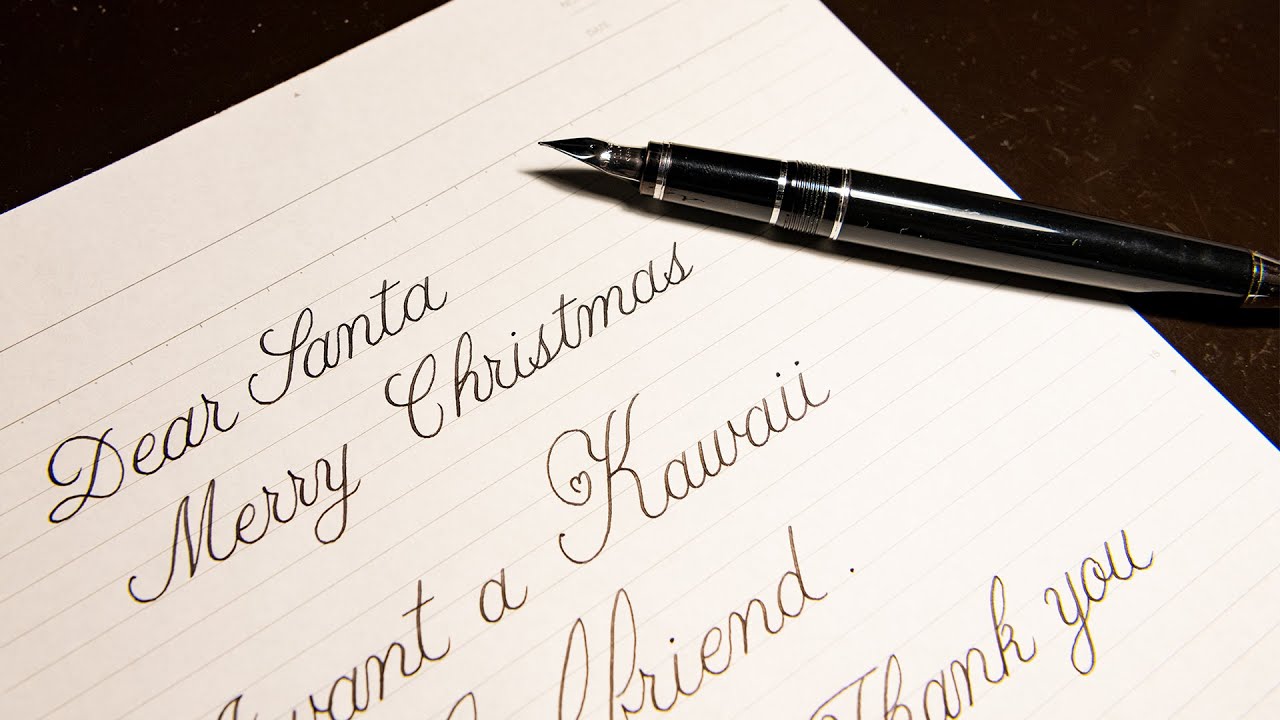 DATE
Dear Santa
Merry Christmas
want a Kawaii
friend.
Thank you